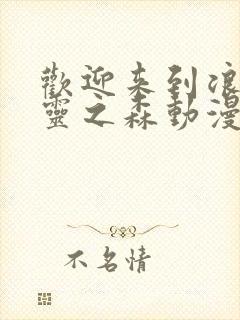 歡迎来到浪
靈之森動漫
不名情